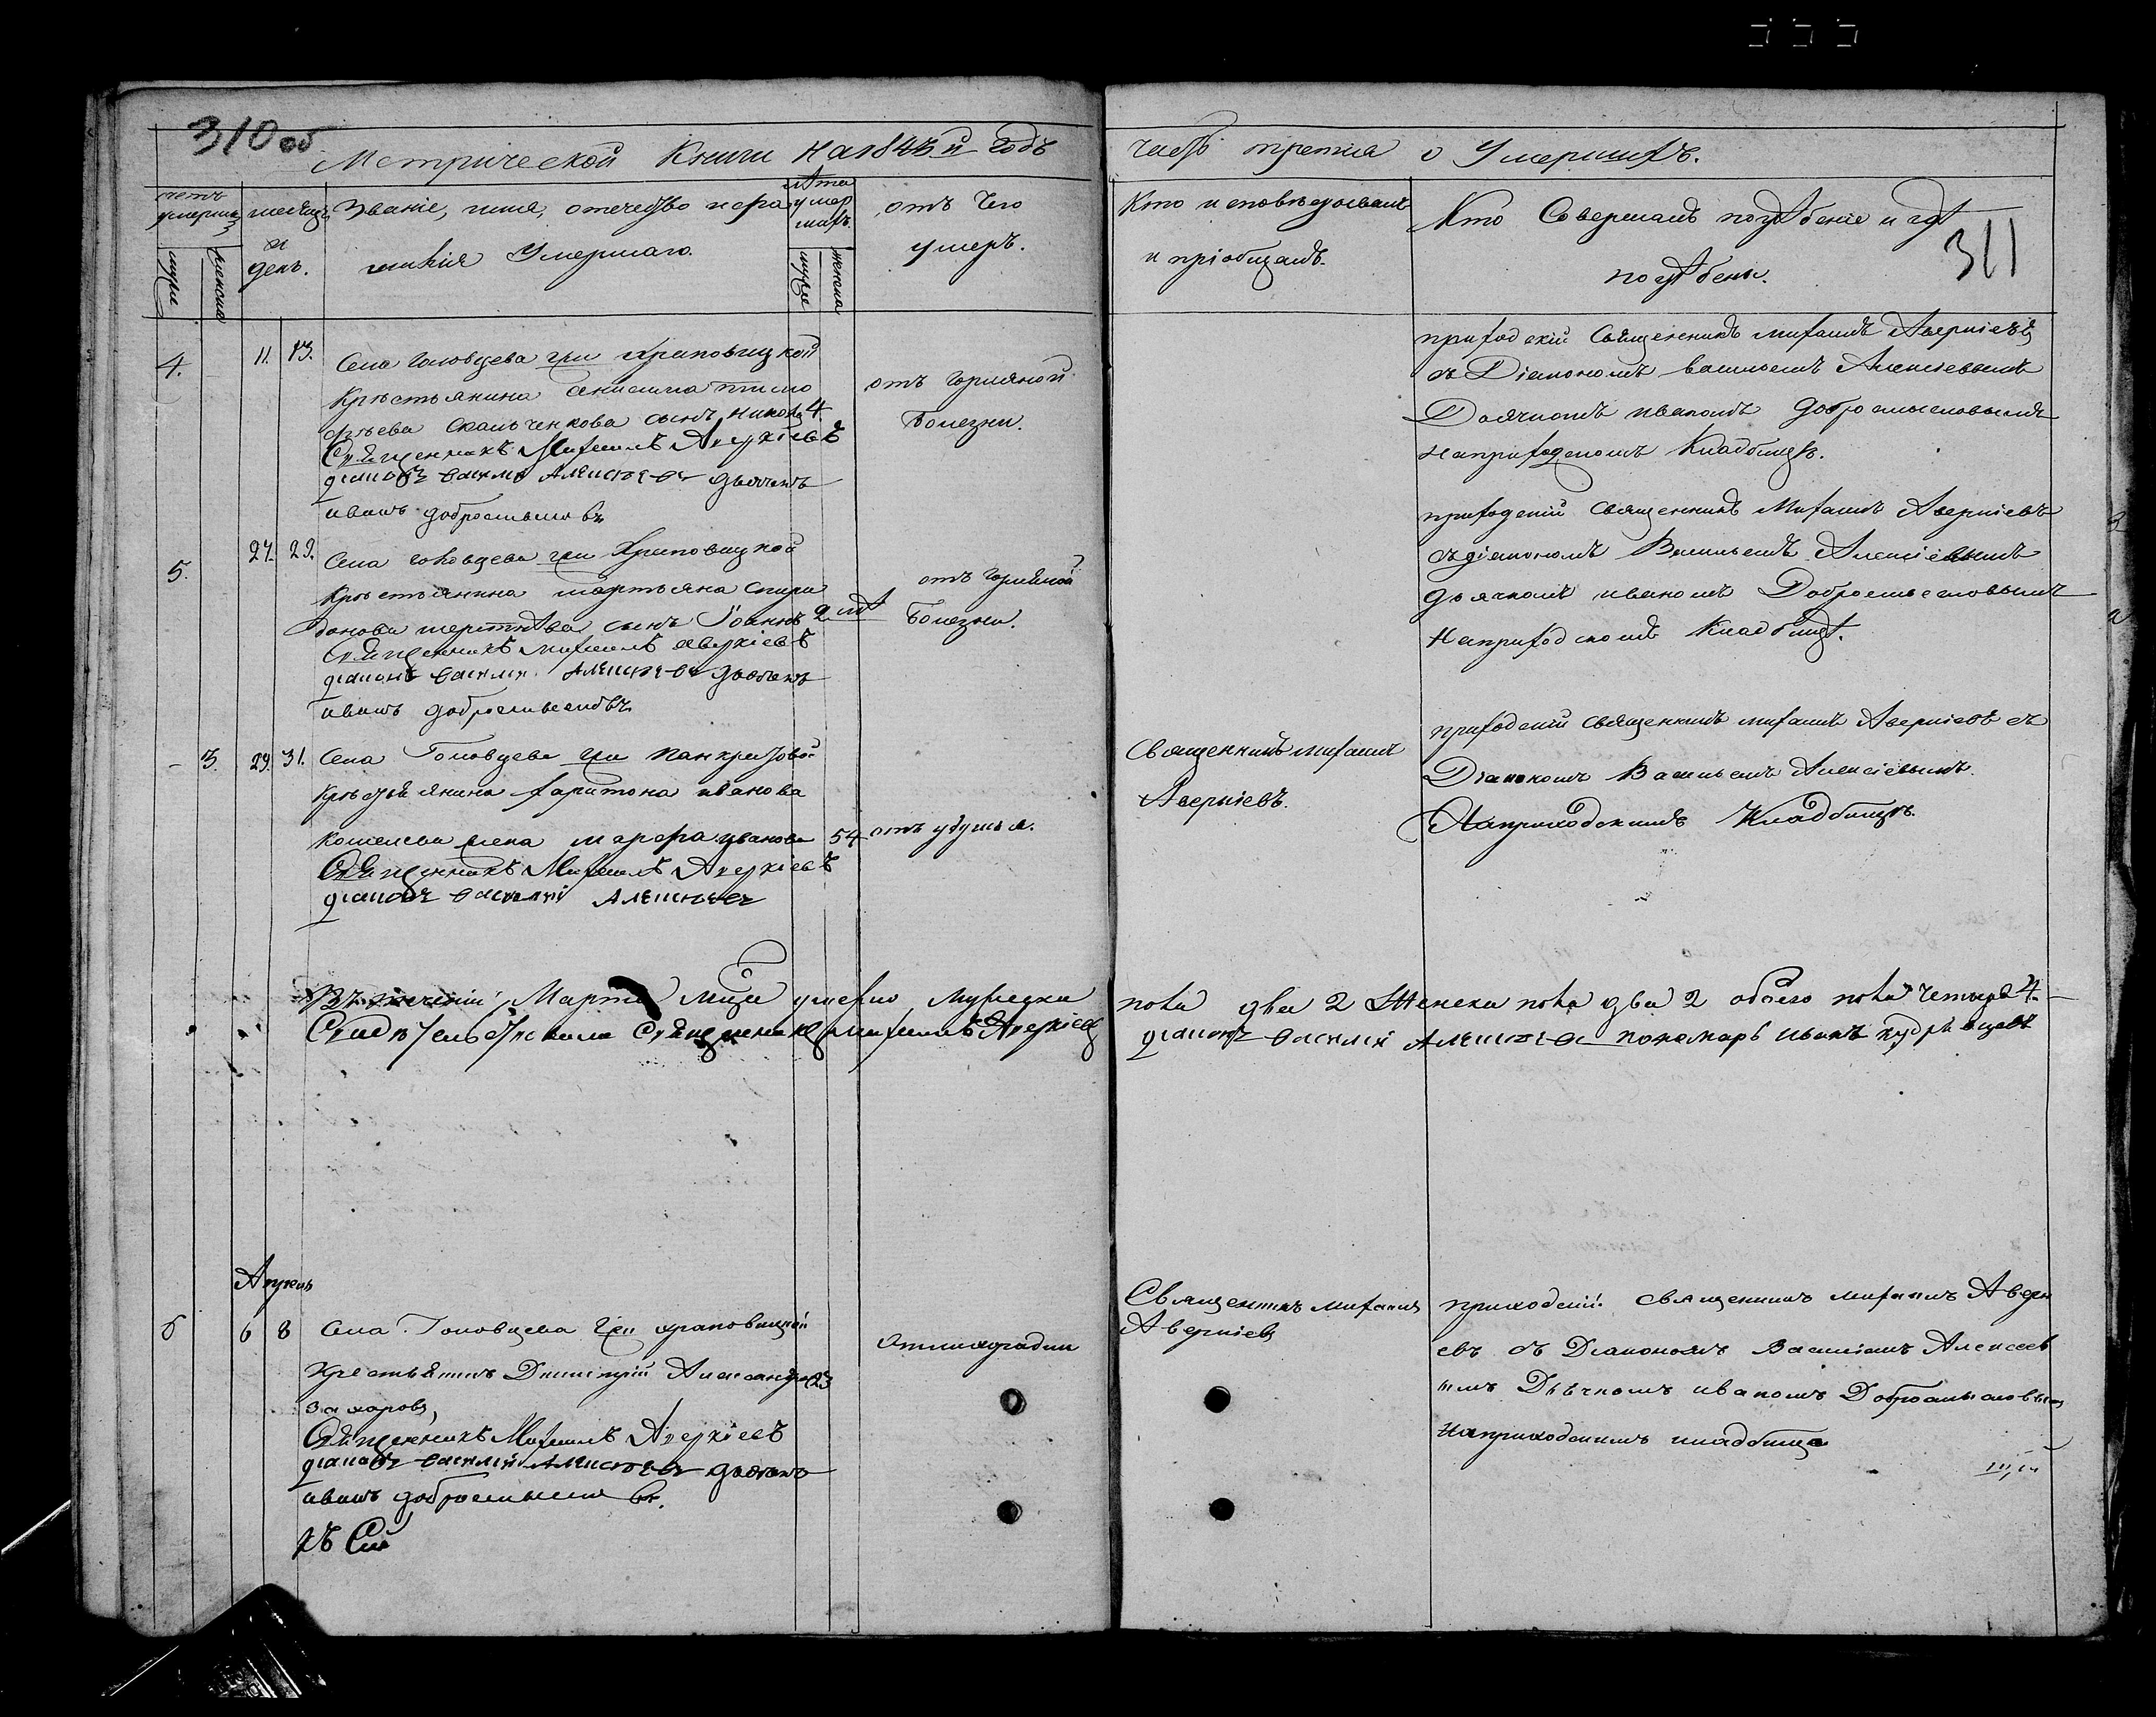 310 об
Метрической Книги на 1845й годъ
часть третія о Умершихъ.
счетъ умерших
месяцъ и день.
Званіе, имя, отечество и фамилія Умершаго.
лѣта умершаго
отъ Чего умеръ.
Кто исповѣдовалъ и пріобщалъ.
Кто Совершалъ погрѣбеніе и гдѣ погрѣбены.
311
мужск
женска
мужск
женска
4. 11. 13.
Села Головцева гжи Храповицкой
Крѣстьянина
сынъ
4
Священникъ Михаилъ Аверкіевъ
діаконъ василій Алексѣевъ дьячекъ
иванъ добросмысловъ
отъ горляной
Болезни.
приходскій Священникъ михаилъ Аверкіевъ
съ Діакономъ василіемъ Алексіевымъ
Дьячкомъ иваномъ Добросмысловымъ
на приходскомъ Кладбищѣ.
5. 27. 29.
Села головцева гжи Храповицкой
Крѣстьянина мартьяна Спири
донова сынъ Іоаннъ
2 лѣт
Священникъ михаилъ аверкіевъ
діаконъ василій Алексѣевъ дьячекъ
иванъ добросмысловъ
отъ горляной
Болезни.
приходскій священникъ Михаилъ Аверкіевъ
съ діакономъ Василіемъ Алексіевымъ
дьячкомъ иваномъ Добросмысловымъ
На приходскомъ Кладбищѣ.
- 3. 29. 31.
Села Головцева гжи Панкратовой
крѣстьянина харитона иванова
жена марфа иванова 54
Священникъ Михаилъ Аверкіевъ
діаконъ василій Алексѣевъ
отъ удушья.
Священникъ михаилъ
Аверкіевъ.
приходскій священникъ михаилъ Аверкіевъ съ
Діакономъ Василіемъ Алексіевымъ.
На приходскимъ Кладбищѣ.
Въ теченіи Марта мца умерло Мужеска пола два 2 Женска пола два 2 обоего пола четыре 4.
Свидѣтельствовали Священникъ михаилъ Аверкіевъ діаконъ василій Алексѣевъ пономарь иванъ кудрявцевъ
Апрель
6 6 8
Села Головцева Гжи храповицкой
Крестьянинъ Димитрій Александро 23
захаровъ,
Священникъ Михаилъ Аверкіевъ
діаконъ василій Алексѣевъ дьячекъ
иванъ добросмысловъ.
къ Сей
Священникъ михаилъ
Аверкіевъ
приходскій священникъ михаилъ Аверкі
евъ съ Діакономъ Василіемъ Алексеев
ымъ Дьячкомъ иваномъ Добросмысловым
На приходскимъ кладбище